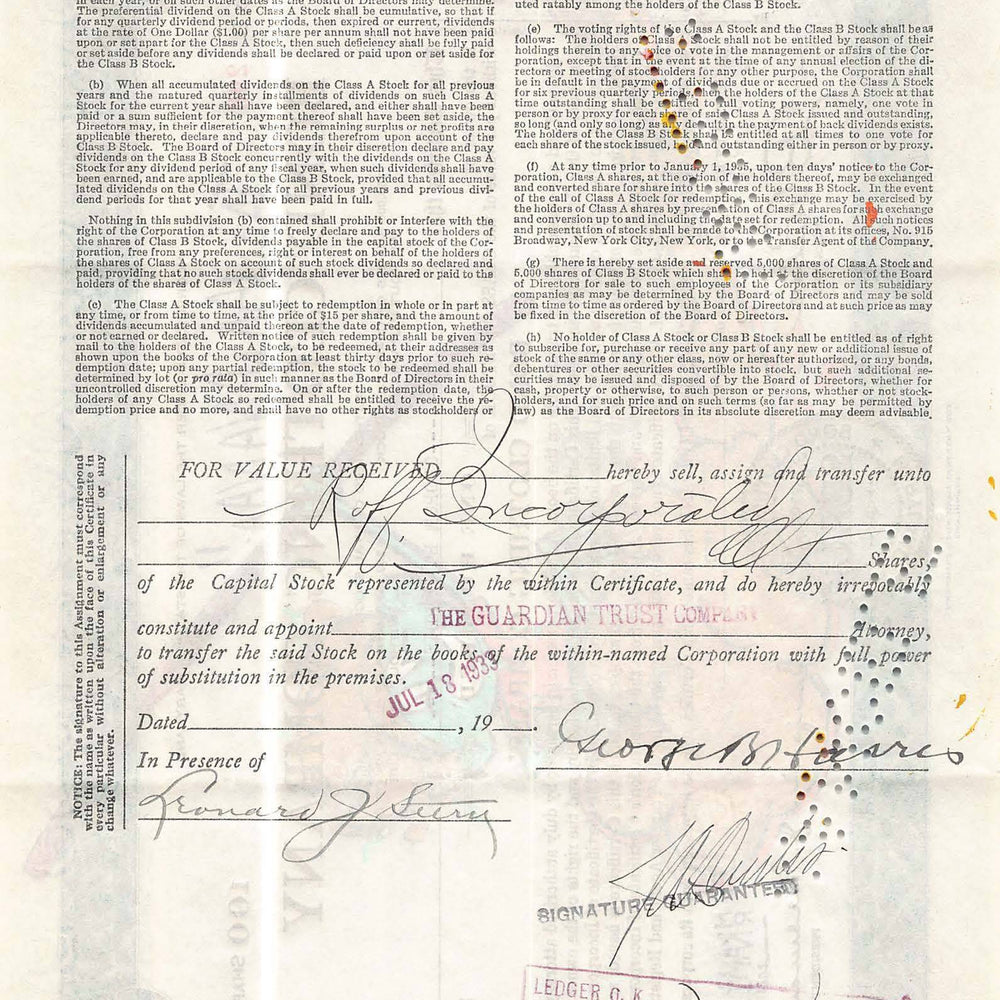 in each year, or on such other dates as the Board of Directors may determine.
The preferential dividend on the Class A Stock shall be cumulative, so that if
for any quarterly dividend period or periods, then expired or current, dividends
at the rate of One Dollar ($1.00) per share per annum shall not have been paid
upon or set apart for the Class A Stock, then such deficiency shall be fully paid
or set aside before any dividends shall be declared or paid upon or set aside for
the Class B Stock.
(b) When all accumulated dividends on the Class A Stock for all previous
years and the matured quarterly installments of dividends on such Class A
Stock for the current year shall have been declared, and either shall have been
paid or a sum sufficient for the payment thereof shall have been set aside, the
Directors may, in their discretion, when the remaining surplus or net profits are
applicable thereto, declare and pay dividends therefrom upon account of the
Class B Stock. The Board of Directors may in their discretion declare and pay
dividends on the Class B Stock concurrently with the dividends on the Class A
Stock for any dividend period of any fiscal year, when such dividends shall have
been earned, and are applicable to the Class B Stock, provided that all accumu-
lated dividends on the Class A Stock for all previous years and previous divi-
dend periods for that year shall have been paid in full.
Nothing in this subdivision (b) contained shall prohibit or interfere with the
right of the Corporation at any time to freely declare and pay to the holders of
the shares of Class B Stock, dividends payable in the capital stock of the Cor-
poration, free from any preferences, right or interest on behalf of the holders of
the shares of Class A Stock on account of such stock dividends so declared and
paid, providing that no such stock dividends shall ever be declared or paid to the
holders of the shares of Class A Stock.
(c) The Class A Stock shall be subject to redemption in whole or in part at
any time, or from time to time, at the price of $15 per share, and the amount of
dividends accumulated and unpaid thereon at the date of redemption, whether
or not earned or declared. Written notice of such redemption shall be given by
mail to the holders of the Class A Stock, to be redeemed, at their addresses as
shown upon the books of the Corporation at least thirty days prior to such re-
demption date; upon any partial redemption, the stock to be redeemed shall be
determined by lot (or pro rata) in such manner as the Board of Directors in their
uncontrolled discretion may determine. On or after the redemption date, the
holders of any Class A Stock so redeemed shall be entitled to receive the re-
demption price and no more, and shall have no other rights as stockholders or
uted ratably among the holders of the Class B Stock.
(e) The voting rights of the Class A Stock and the Class B Stock shall be as
follows: The holders of Class A Stock shall not be entitled by reason of their
holdings therein to any voice or vote in the management or affairs of the Cor-
poration, except that in the event at the time of any annual election of the di-
rectors or meeting of stockholders for any other purpose, the Corporation shall
be in default in the payment of dividends due or accrued on the Class A Stock
for six previous quarterly periods, then, the holders of the Class A Stock at that
time outstanding shall be entitled to full voting powers, namely, one vote in
person or by proxy for each share of said Class A Stock issued and outstanding,
so long (and only so long) as any default in the payment of back dividends exists.
The holders of the Class B Stock shall be entitled at all times to one vote for
each share of the stock issued, held and outstanding either in person or by proxy.
(f) At any time prior to January 1, 1935, upon ten days' notice to the Cor-
poration, Class A shares, at the option of the holders thereof, may be exchanged
and converted share for share into shares of the Class B Stock. In the event
of the call of Class A Stock for redemption, this exchange may be exercised by
the holders of Class A shares by presentation of Class A shares for such exchange
and conversion up to and including the date set for redemption. All such notices
and presentation of stock shall be made to the Corporation at its offices, No. 915
Broadway, New York City, New York, or to the Transfer Agent of the Company.
(g) There is hereby set aside and reserved 5,000 shares of Class A Stock and
5,000 shares of Class B Stock which shall be in the discretion of the Board
of Directors for sale to such employees of the Corporation or its subsidiary
companies as may be determined by the Board of Directors and may be sold
from time to time as ordered by the Board of Directors and at such price as may
be fixed in the discretion of the Board of Directors.
(h) No holder of Class A Stock or Class B Stock shall be entitled as of right
to subscribe for, purchase or receive any part of any new or additional issue of
stock of the same or any other class, now or hereafter authorized, or any bonds,
debentures or other securities convertible into stock, but such additional se-
curities may be issued and disposed of by the Board of Directors, whether for
cash, property or otherwise, to such person or persons, whether or not stock-
holders, and for such price and on such terms (so far as may be permitted by
law) as the Board of Directors in its absolute discretion may deem advisable.
NOTICE: The signature to this Assignment must correspond
with the name as written upon the face of this Certificate in
every particular without alteration or enlargement or any
change whatever.
FOR VALUE RECEIVED hereby sell, assign and transfer unto
Roff Incorporated
Shares,
of the Capital Stock represented by the within Certificate, and do hereby irrevocably
THE GUARDIAN TRUST COMPANY
constitute and appoint Attorney,
to transfer the said Stock on the books of the within-named Corporation with full power
of substitution in the premises.
JUL 18 1933
Dated , 19 .
George B
In Presence of
Leonard J
SIGNATURE GUARANTEED
LEDGER O. K.